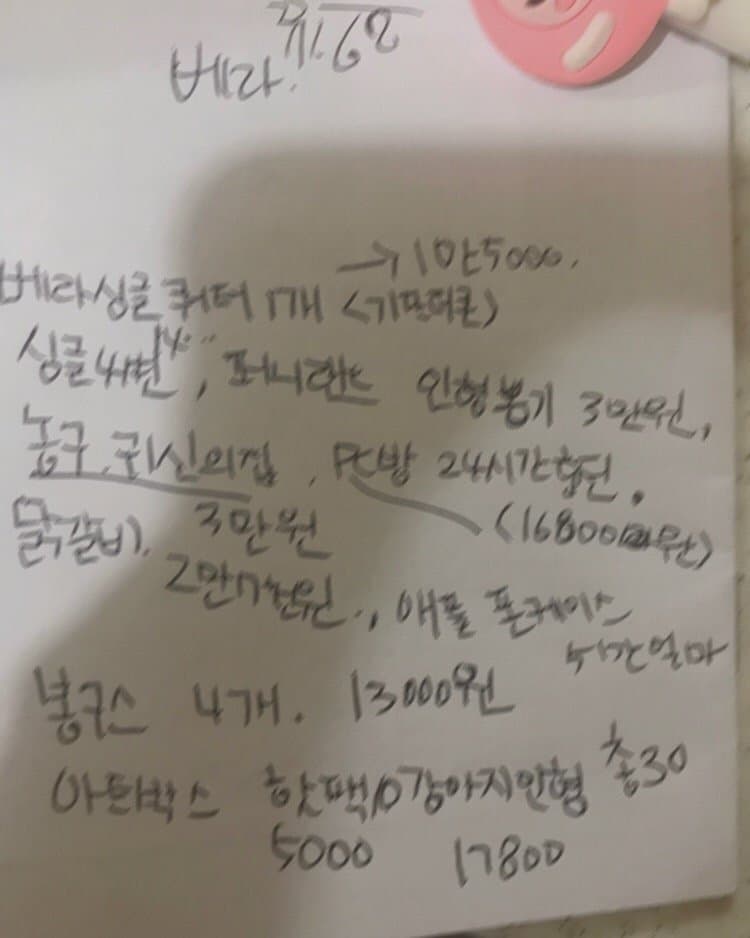 베라.
→ 1만5000.
베라싱글 쿼터 1개 <기프티콘>
싱글 4번, 퍼니랜드 인형뽑기 3만원,
농구, 귀신의집, PC방 24시간 했던.
닭갈비). 3만원 (16800원)
2만7천원., 애플 폰케이스
시간얼마
봉구스 4개. 13000원
아트박스 핫팩10 강아지인형 총30
5000 17800